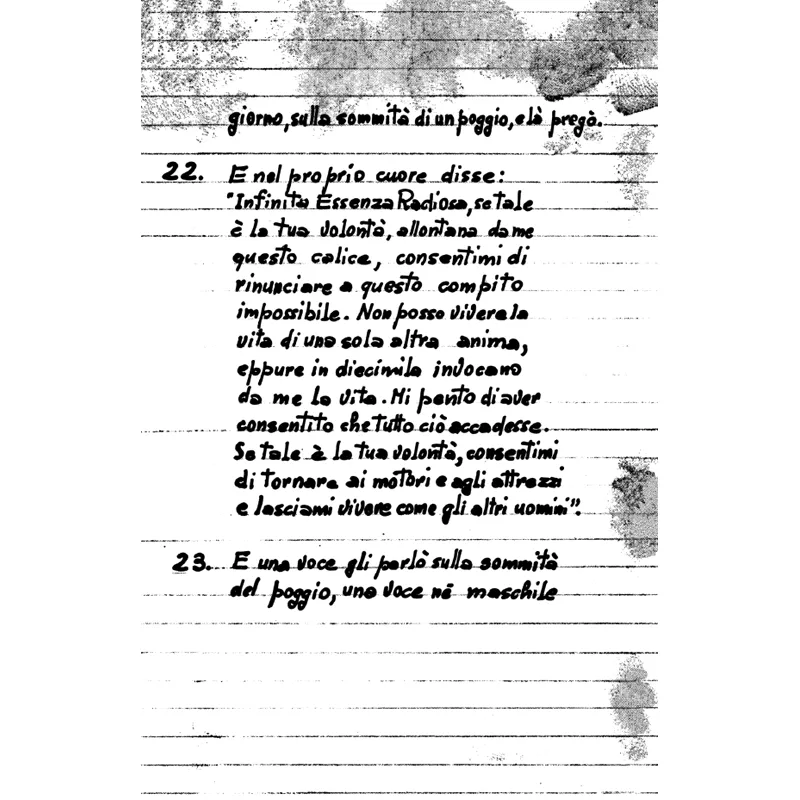 giorno, sulla sommità di un poggio, e là pregò.
22. E nel proprio cuore disse:
"Infinita Essenza Radiosa, se tale
è la tua volontà, allontana da me
questo calice, consentimi di
rinunciare a questo compito
impossibile. Non posso vivere la
vita di una sola altra anima,
eppure in diecimila invocano
da me la vita. Mi pento di aver
consentito che tutto ciò accadesse.
Se tale è la tua volontà, consentimi
di tornare ai motori e agli attrezzi
e lasciami vivere come gli altri uomini".
23. E una voce gli parlò sulla sommità
del poggio, una voce né maschile